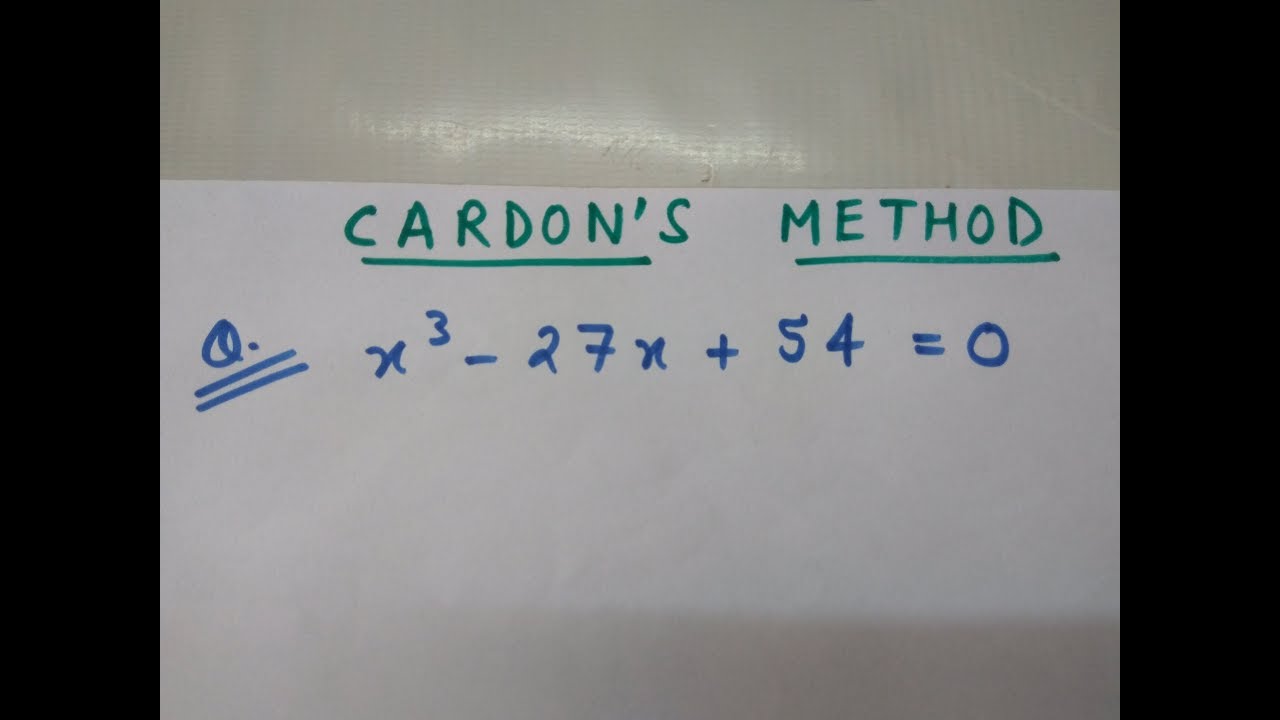 CARDON'S METHOD
Q. x³ - 27x + 54 = 0